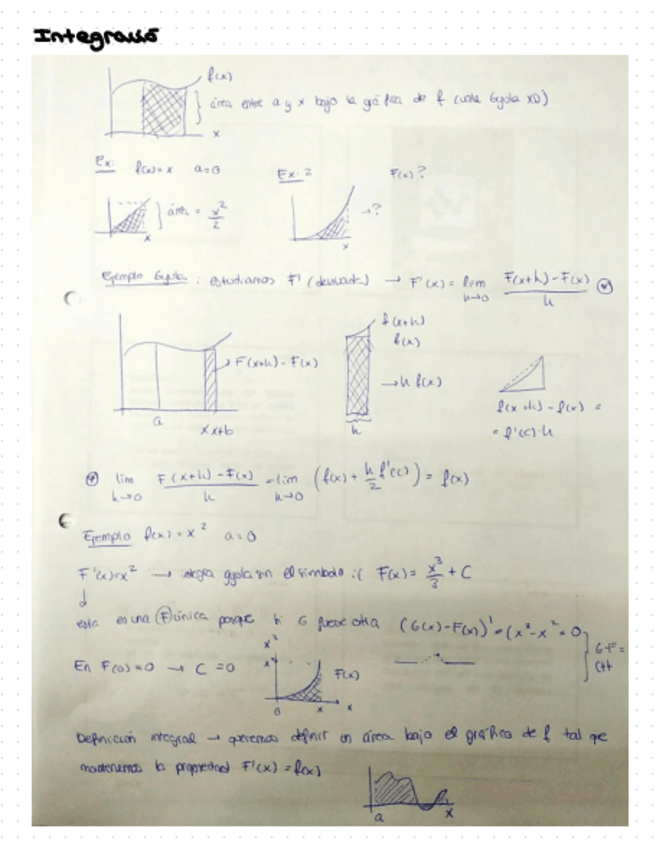 Integració
f(x)
área entre a y x bajo la gráfica de f (vale Gyula XD)
x
Ex: f(x)=x a=0
Ex. 2 F(x)?
área = x²/2
→?
x x
Ejemplo Gyula: estudiamos F' (derivada) → F'(x) = lim h→0 (F(x+h)-F(x))/h
f(x+h)
f(x)
F(x+h)-F(x)
→h f(x)
a x x+h h
f(x+h)-f(x) =
= f'(c)·h
lim h→0 (F(x+h)-F(x))/h = lim h→0 (f(x) + h/2 f'(c)) = f(x)
Ejemplo f(x)=x² a=0
F'(x)=x² → gyula sin el símbolo :( F(x) = x³/3 + C
esta es una F única porque si G fuese otra (G(x)-F(x))' = (x²-x²=0
G-F=
En F(0)=0 → C=0
x²
x²
F(x)
0 x x
Definición integral → queremos definir un área bajo el gráfico de f tal que
mantenemos la propiedad F'(x)=f(x)
a x